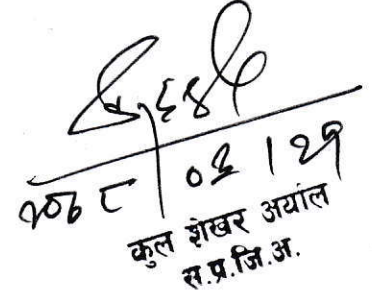 २०६८/०३/२१
कुल शेखर अर्याल
स.प्र.जि.अ.